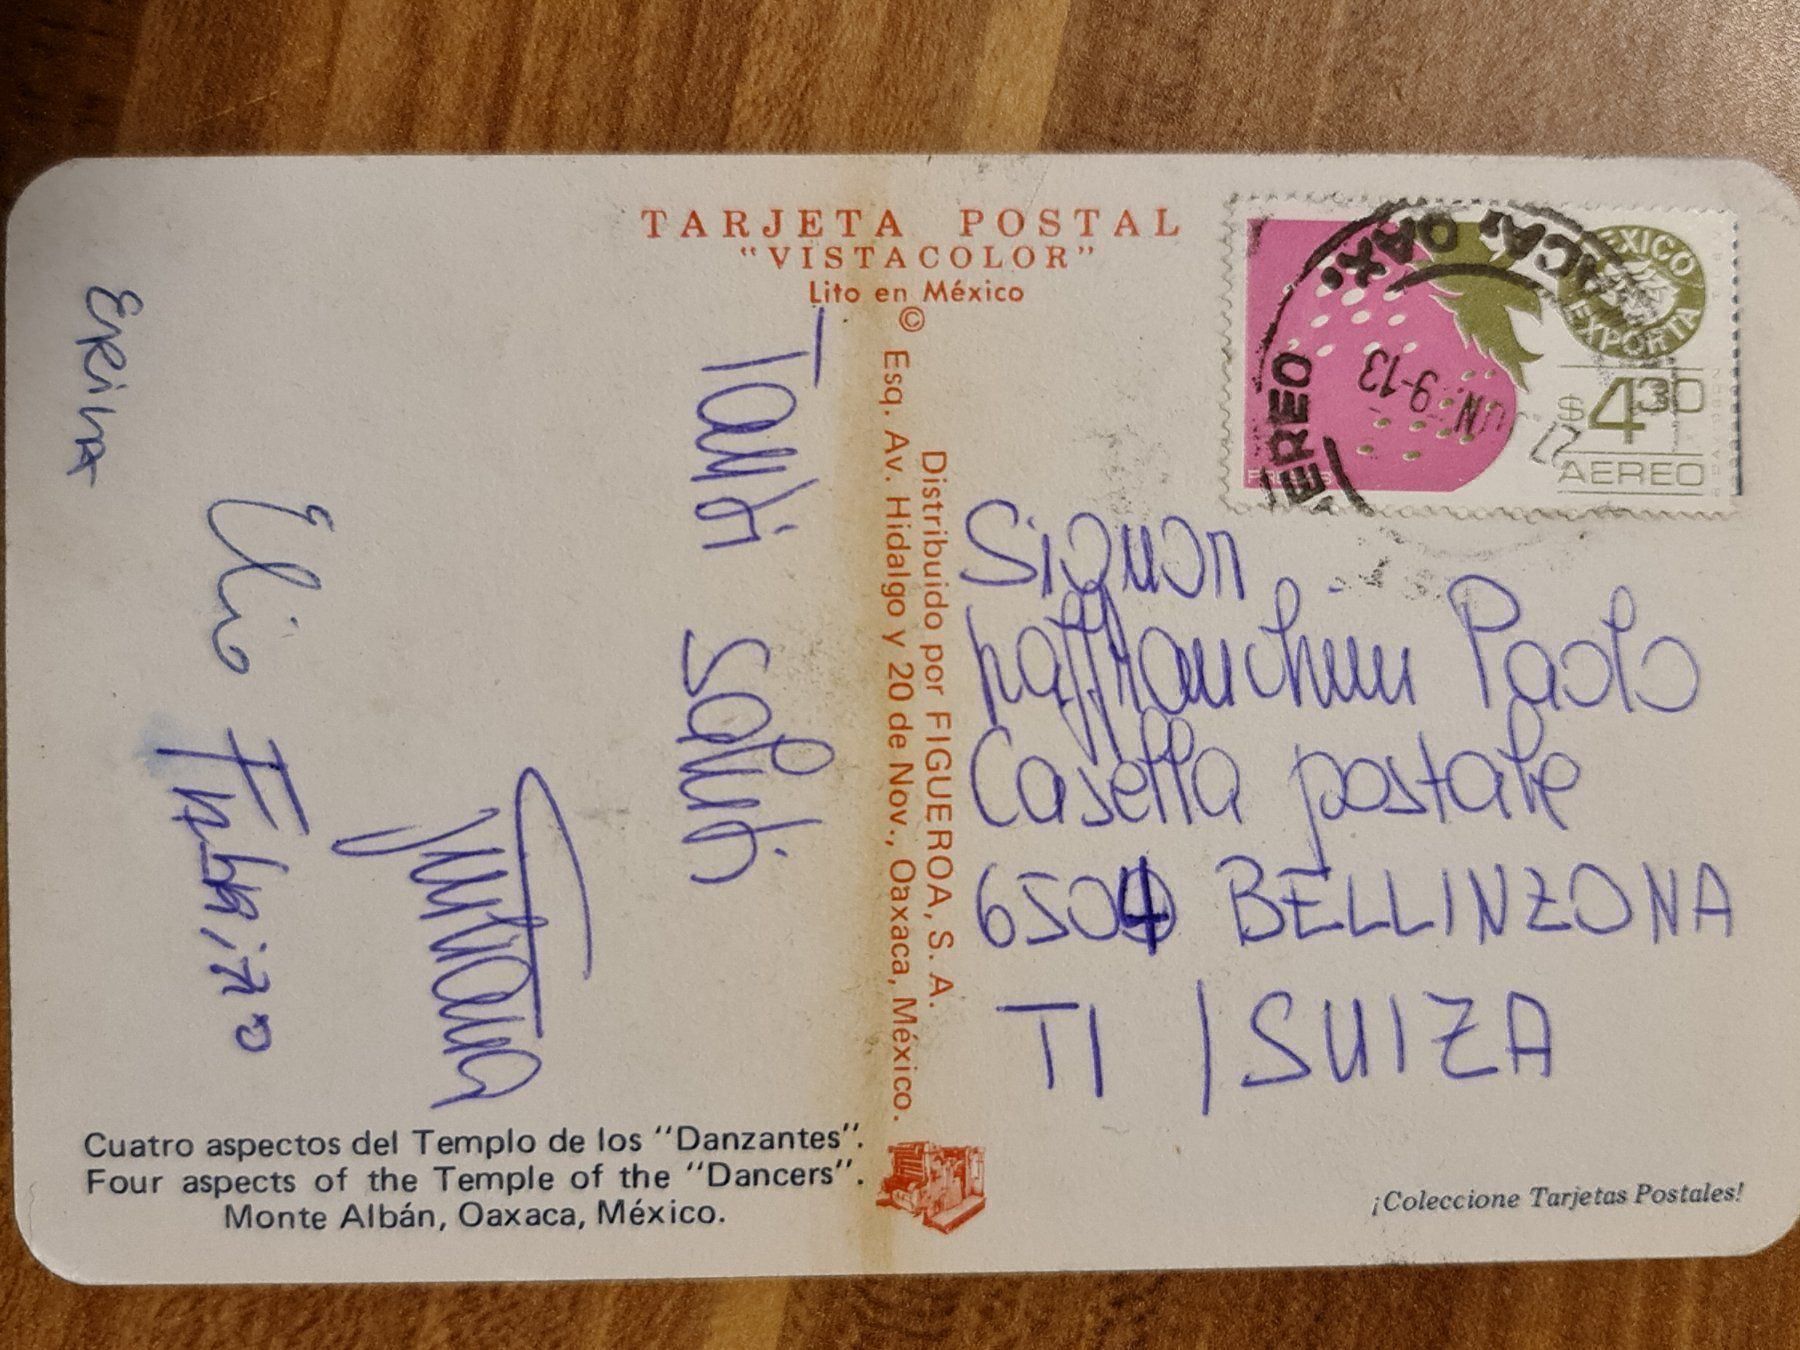 TARJETA POSTAL
"VISTACOLOR"
Lito en México
© Esq. Av. Hidalgo y 20 de Nov., Oaxaca, México.
Distribuido por FIGUEROA, S. A.
Tanti saluti
Elio
Fabrizio
MEXICO
EXPORTA
$4.30
AEREO
AEREO
OAX.
9-13
Signor
Paolo
Casella postale
6504 BELLINZONA
TI / SUIZA
Cuatro aspectos del Templo de los "Danzantes".
Four aspects of the Temple of the "Dancers".
Monte Albán, Oaxaca, México.
¡Coleccione Tarjetas Postales!